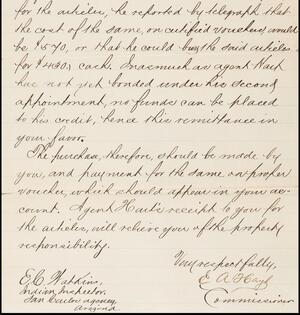 for the articles, he reported by telegraph that
the cost of the same, on certified vouchers, would
be $570, or that he could buy the said articles
for $430, cash. Inasmuch as agent Hart
has not yet bonded under his second
appointment, no funds can be placed
to his credit, hence this remittance in
your favor.
The purchase, therefore, should be made by
you, and payment for the same on proper
voucher, which should appear in your ac-
count. Agent Hart's receipt to you for
the articles, will relieve you of the property
responsibility.
Very respectfully,
E. A. Hayt
Commissioner
E. C. Watkins,
Indian Inspector,
San Carlos agency,
Arizona.